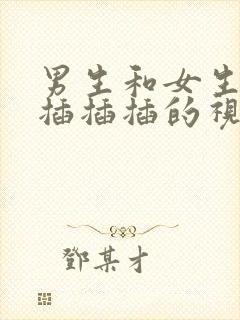 男生和女生
插插插的視
鄧某才